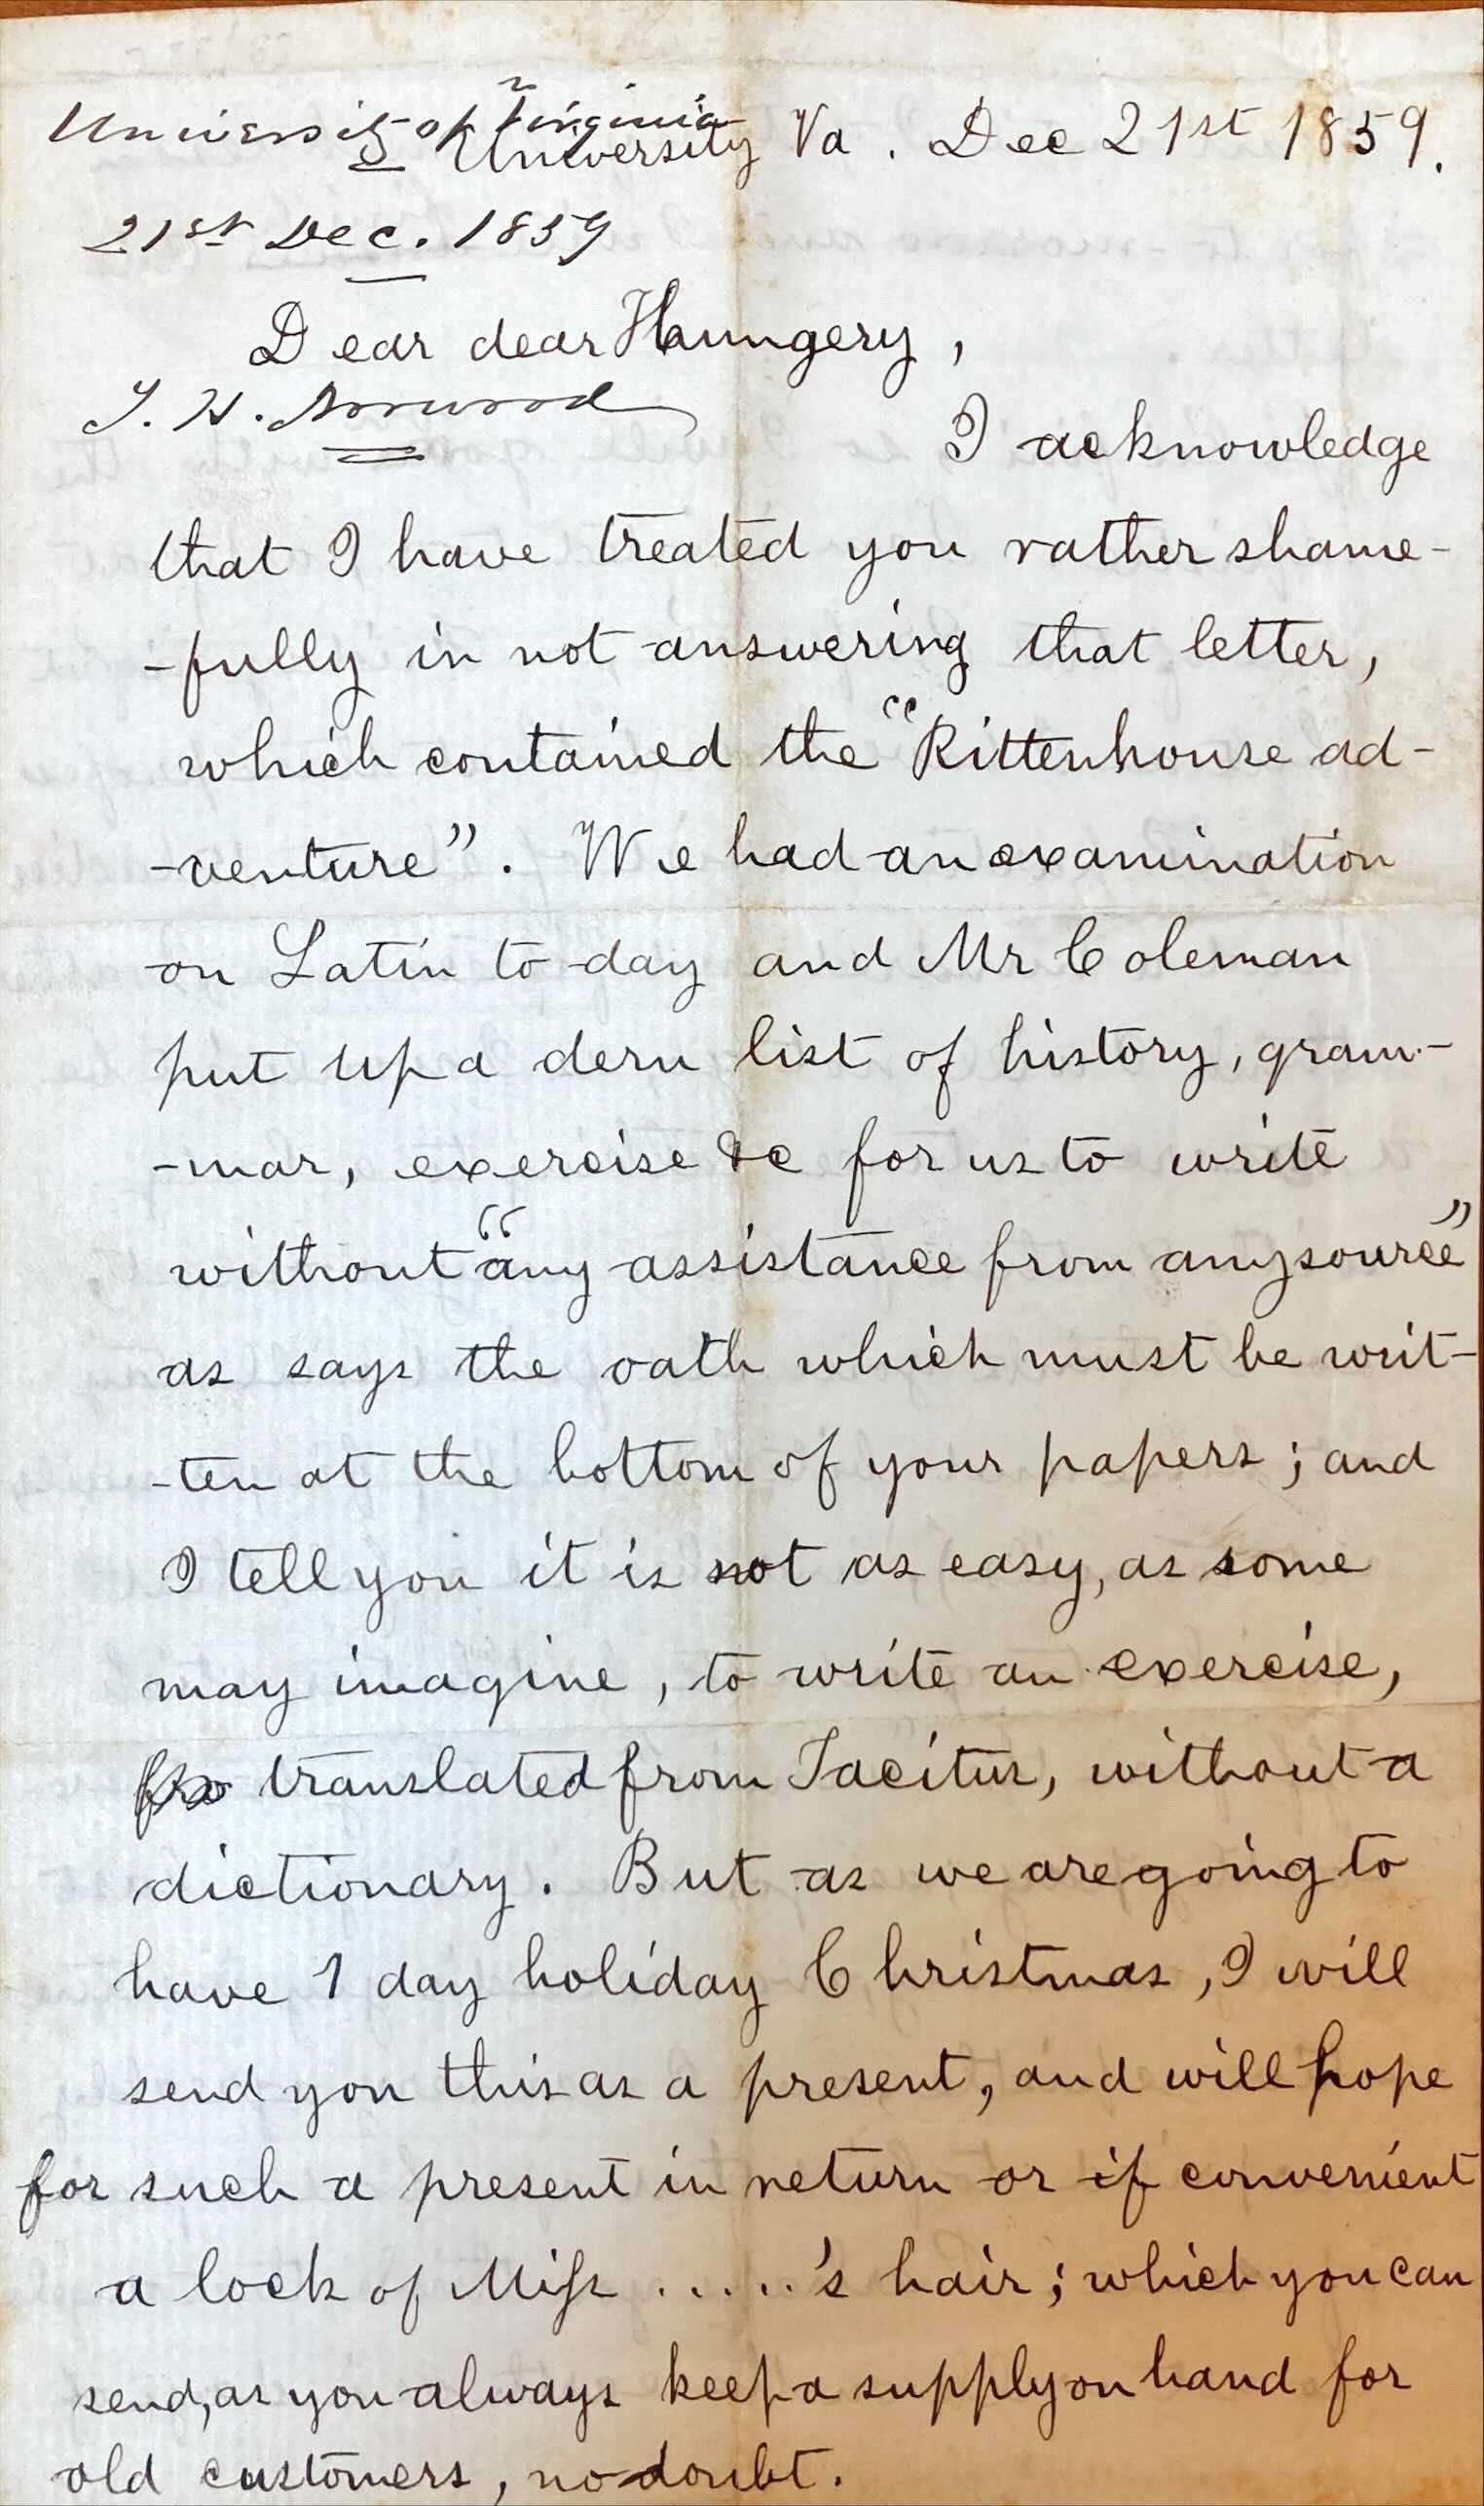 University of Virginia
University Va. Dec 21st 1859.
21st Dec. 1859
Dear dear Hungery,
T. H. Norwood
I acknowledge
that I have treated you rather shame-
-fully in not answering that letter,
which contained the "Rittenhouse ad-
-venture". We had an examination
on Latin to-day and Mr Coleman
put up a dern list of history, gram-
-mar, exercise &c for us to write
without "any assistance from any source"
as says the oath which must be writ-
-ten at the bottom of your papers; and
I tell you it is not as easy, as some
may imagine, to write an exercise,
translated from Tacitus, without a
dictionary. But as we are going to
have 1 day holiday Christmas, I will
send you this as a present, and will hope
for such a present in return or if convenient
a lock of Miss .....'s hair; which you can
send, as you always keep a supply on hand for
old customers, no doubt.